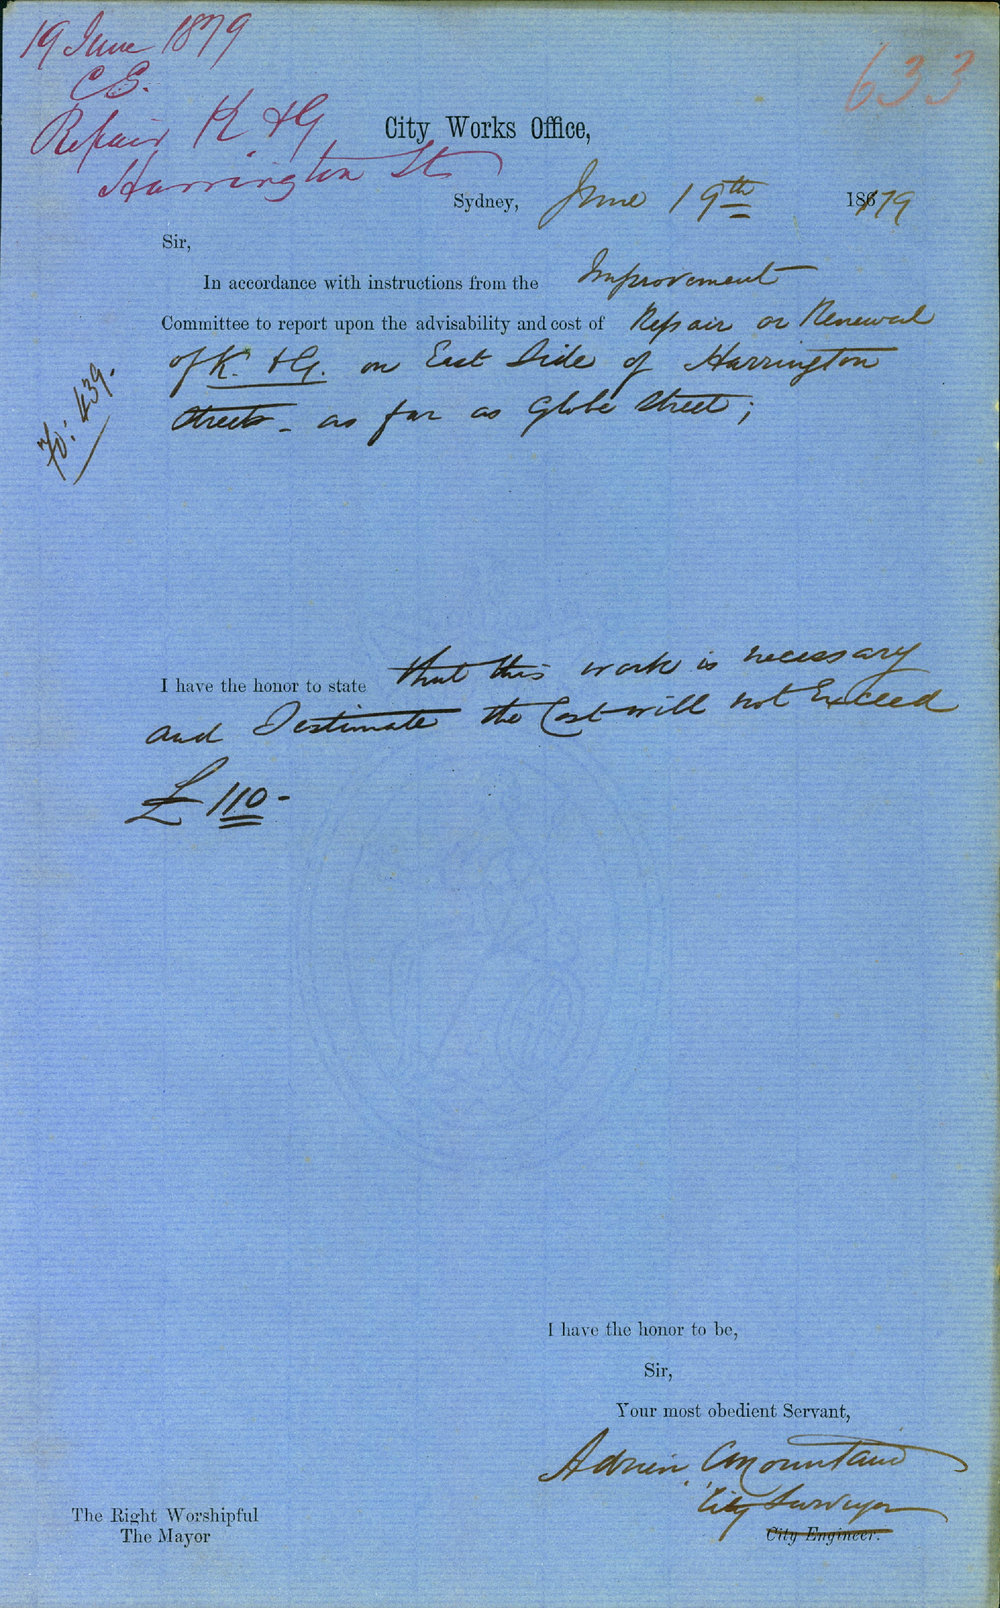 19 June 1879
C E.
Repair K & G
Harrington St
633
City Works Office,
Sydney, June 19th 18679
Sir,
In accordance with instructions from the Improvement
Committee to report upon the advisability and cost of Repair or Renewal
of K. & G. on East Side of Harrington
Street - as far as Globe Street;
Fo: 439.
I have the honor to state that this work is necessary
and I estimate the Cost will not Exceed
£110-
I have the honor to be,
Sir,
Your most obedient Servant,
Adrien C Mountain
City Surveyor
City Engineer.
The Right Worshipful
The Mayor